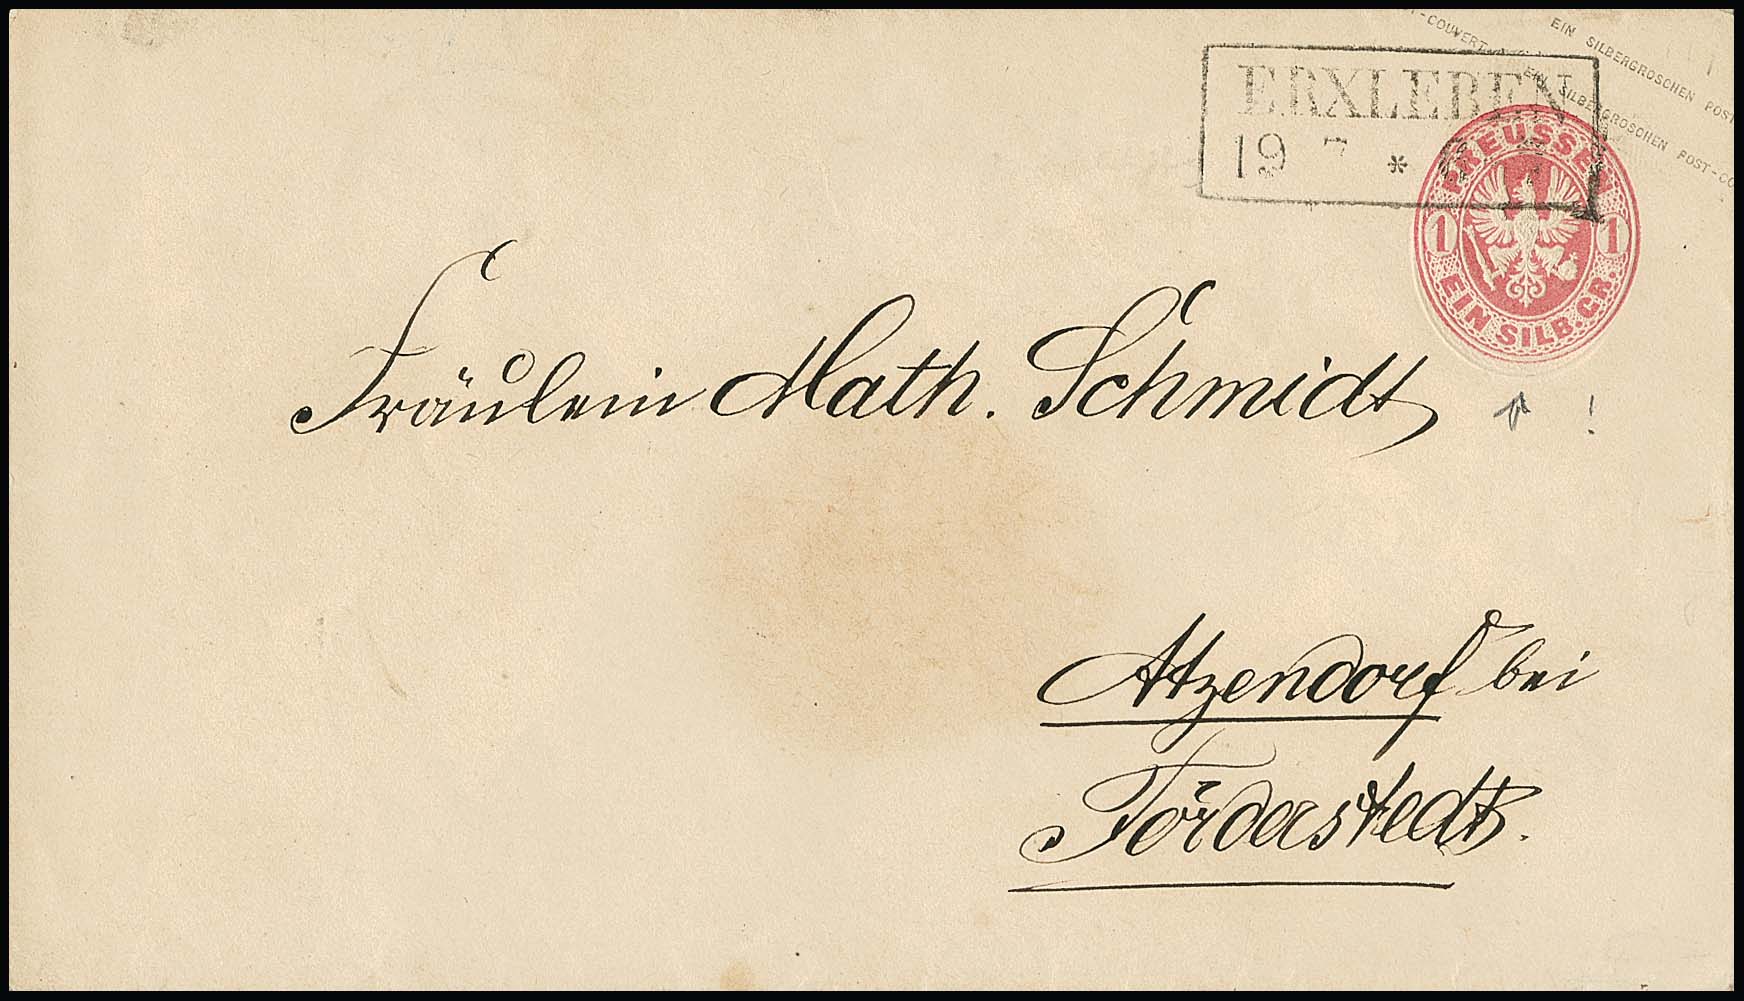 EIN SILBERGROSCHEN POST
T-COUVERT
EIN SILBERGROSCHEN POST-CO
ERXLEBEN
19 7 *
PREUSSEN
1 1
EIN SILB. GR.
Fräulein Math. Schmidt
!
Atzendorf bei
Förderstedt.